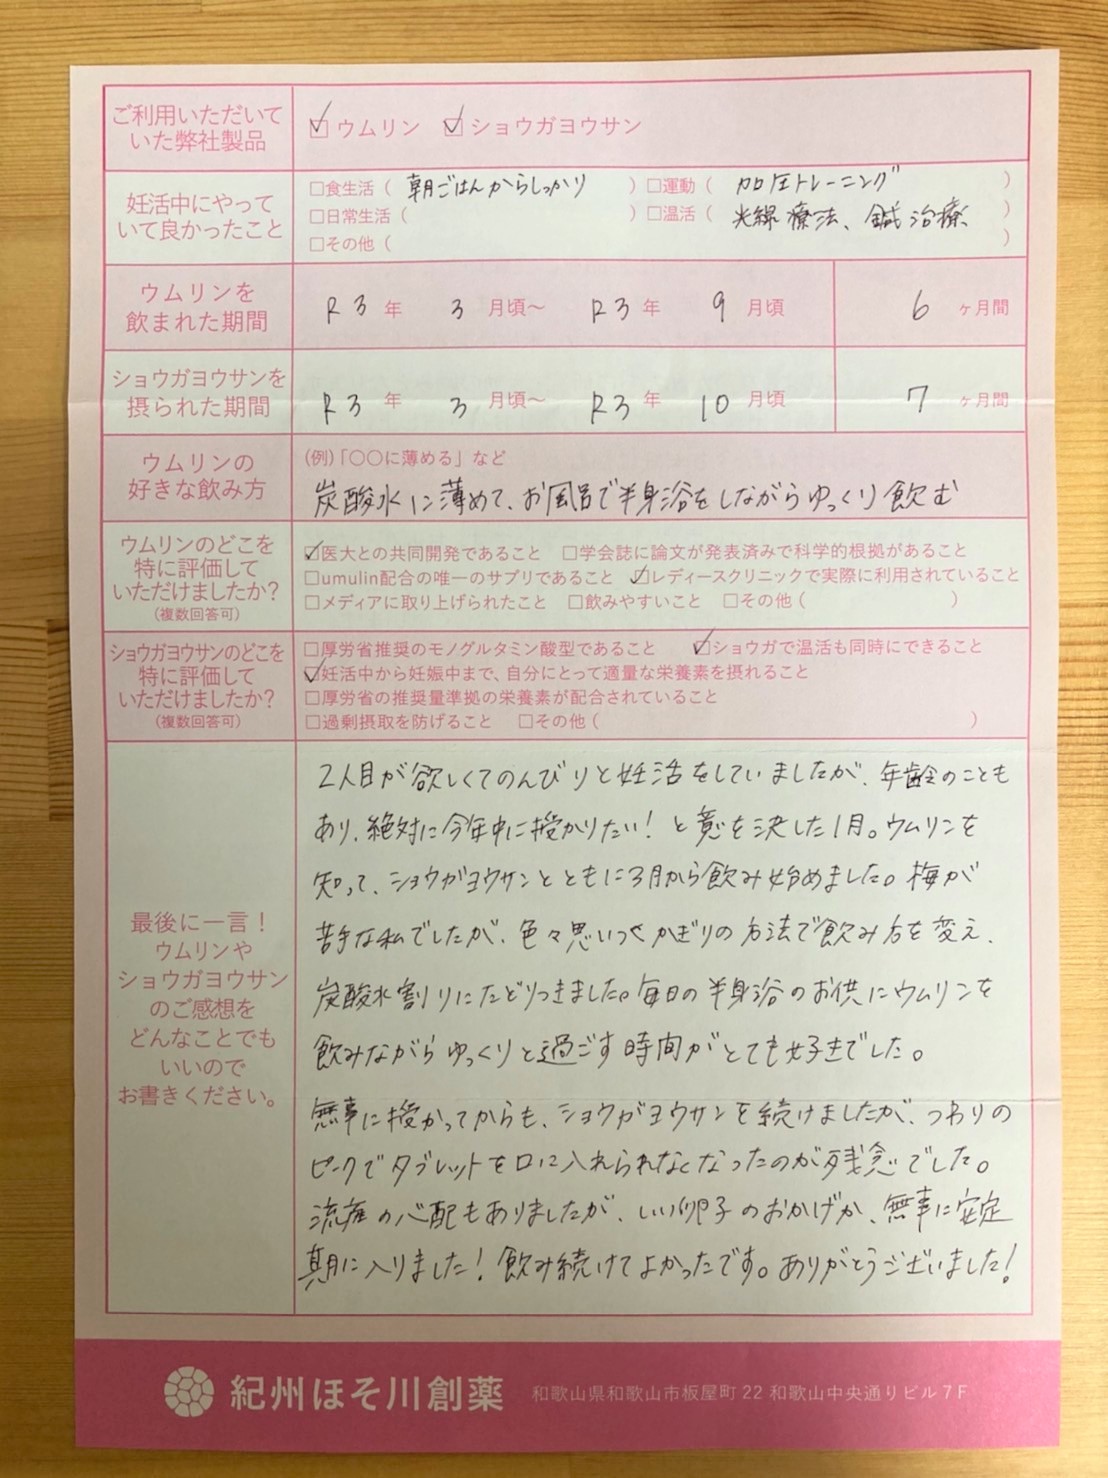 ご利用いただいて
いた弊社製品
☑ウムリン ☑ショウガヨウサン
妊活中にやって
いて良かったこと
□食生活（ 朝ごはんからしっかり ）□運動（ 加圧トレーニング ）
□日常生活（ ）□温活（ 光線療法、鍼治療 ）
□その他（ ）
ウムリンを
飲まれた期間
R3年 3月頃～ R3年 9月頃 6ヶ月間
ショウガヨウサンを
摂られた期間
R3年 3月頃～ R3年 10月頃 7ヶ月間
ウムリンの
好きな飲み方
(例)「〇〇に薄める」など
炭酸水に薄めて、お風呂で半身浴をしながらゆっくり飲む
ウムリンのどこを
特に評価して
いただけましたか?
(複数回答可)
☑医大との共同開発であること □学会誌に論文が発表済みで科学的根拠があること
□umulin配合の唯一のサプリであること ☑レディースクリニックで実際に利用されていること
□メディアに取り上げられたこと □飲みやすいこと □その他（ ）
ショウガヨウサンのどこを
特に評価して
いただけましたか?
(複数回答可)
□厚労省推奨のモノグルタミン酸型であること ☑ショウガで温活も同時にできること
☑妊活中から妊娠中まで、自分にとって適量な栄養素を摂れること
□厚労省の推奨量準拠の栄養素が配合されていること
□過剰摂取を防げること □その他（ ）
最後に一言！
ウムリンや
ショウガヨウサン
のご感想を
どんなことでも
いいので
お書きください。
2人目が欲しくてのんびりと妊活をしていましたが、年齢のことも
あり、絶対に今年中に授かりたい！と意を決した1月。ウムリンを
知って、ショウガヨウサンとともに3月から飲み始めました。梅が
苦手な私でしたが、色々思いつくかぎりの方法で飲み方を変え、
炭酸水割りにたどりつきました。毎日の半身浴のお供にウムリンを
飲みながらゆっくりと過ごす時間がとても好きでした。
無事に授かってからも、ショウガヨウサンを続けましたが、つわりの
ピークでタブレットを口に入れられなくなったのが残念でした。
流産の心配もありましたが、いい卵子のおかげか、無事に安定
期に入りました！飲み続けてよかったです。ありがとうございました！
紀州ほそ川創薬 和歌山県和歌山市板屋町22 和歌山中央通りビル7F